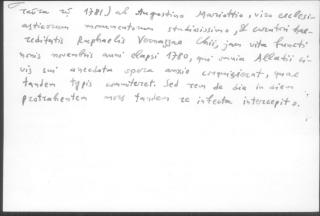 1781) ab Augustino Mariottio, viro ecclesi-
asticorum monumentorum studiosissimo, & curatori hae-
reditatis Raphaelis Vernazzae Chii, jam vita functi
nonis novembris anni elapsi 1780, qui omnia Allatii ci-
vis sui anecdota opera anxie conquisierat, quae
tandem typis committeret. Sed rem de die in diem
protrahentem mors tandem re infecta intercepit.